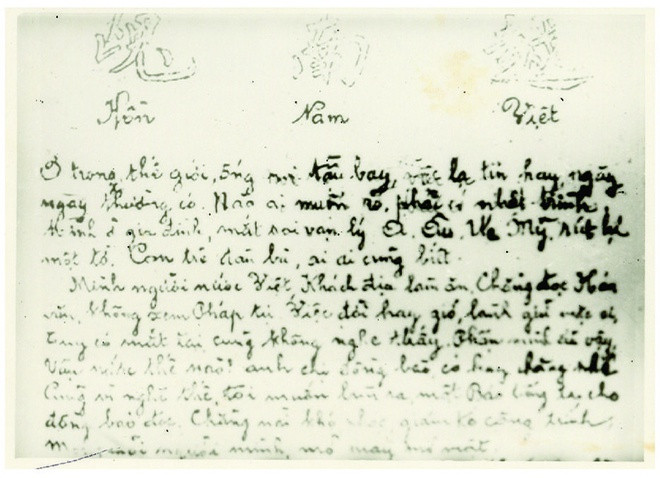 Hồn Nam Việt
Ở trong thế giới, ống nói tầu bay, việc lạ tin hay, ngày
ngày thường có. Nào ai muốn rõ, phải có nhật trình
thinh ở gia đình, mắt soi vạn lý Á, Âu, Úc, Mỹ, rút lại
một tờ. Con trẻ đàn bà, ai ai cũng biết.
Mình người nước Việt Khách địa làm ăn, Chẳng đọc Hán
văn, không xem Pháp tự. Việc đời hay giở, lành giữ mặc ai
Tuy có mắt tai cũng không nghe thấy. Phần mình đã vậy,
Vận nước thế nào? anh chị đồng bào có hay chăng nhẽ
nghĩ thế, tôi muốn ra một Báo tiếng ta cho
đồng bào đọc. Chẳng nài khó nhọc, quản công trình
người mình, mở mày mở mắt.